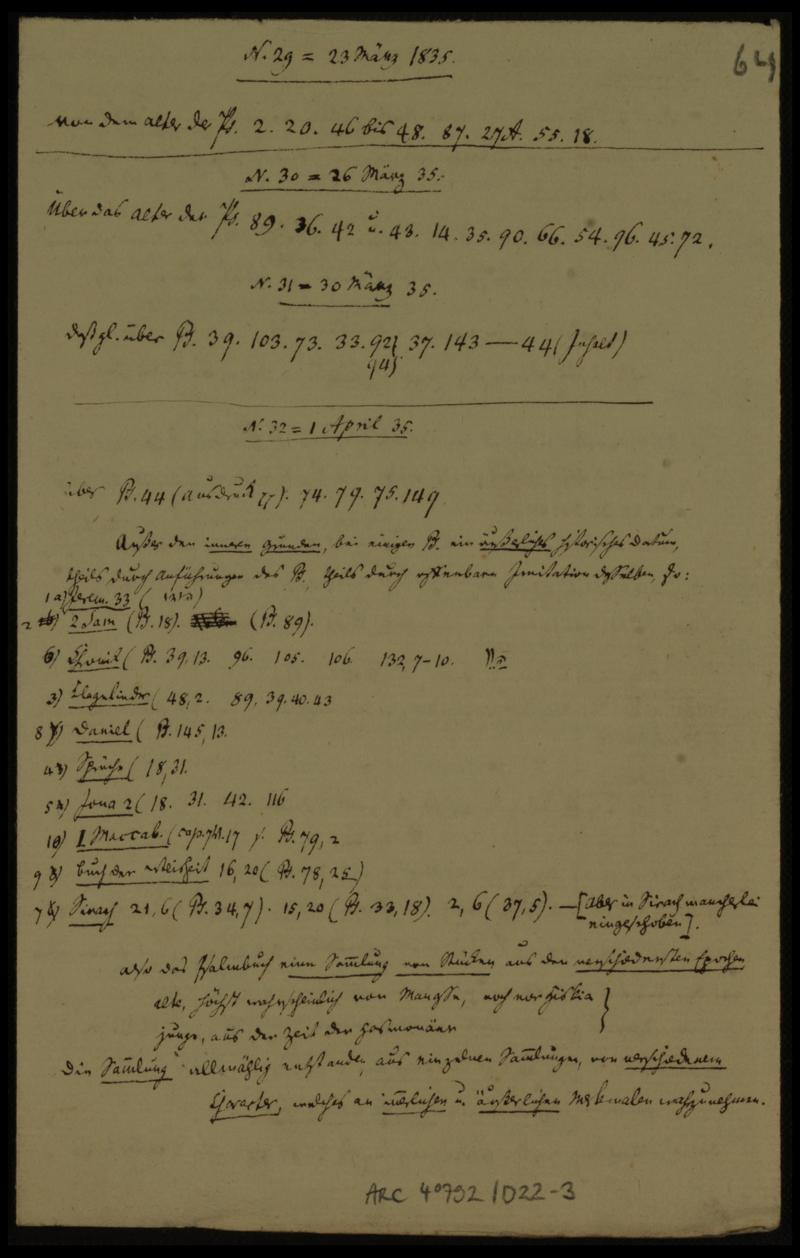 64
N. 29 = 23 März 1835.
von dem alter der Ps. 2. 20. 46 bis 48. 87. 27A. 55. 18.
N. 30 = 26 März 35.
Über das alter der Ps. 89. 36. 42 u. 43. 14. 35. 90. 66. 54. 96. 45. 72.
N. 31 = 30 März 35.
deßgl. über Ps. 39. 103. 73. 33. 92} 37. 143 — 44 (Inhalt)
94}
N. 32 = 1 April 35.
über Ps. 44 (ausdruck pp). 74. 79. 75. 149
Außer den innern gründen, bei einigen Ps. ein äußerliches historisches Datum,
theils durch anführungen des Ps, theils durch offenbare Imitation desselben, So:
1 a) Jerem. 33 (
2 b) 2 Sam (Ps. 18). (Ps. 89).
6) Chronik (Ps. 39,13. 96. 105. 106. 132,7-10.
3) Klagelieder (48,2. 89,39.40.43
8 Daniel (Ps. 145,13.
4 Sprüche (18,31.
5 Jona 2 (18. 31. 42. 116
10) I Maccab. (cap. 7 17 Ps. 79,2
9 Buch der Weisheit 16,20 (Ps. 78,25)
7 Sirach 21,6 (Ps. 34,7). 15,20 (Ps. 33,18). 2,6 (37,5). — [aber in Sirach mancherlei
eingeschoben].
also das Psalmbuch eine Sammlung von Stücken aus den verschiedensten Epochen
alte, höchst wahrscheinlich von Manasse, noch vor Hiskia }
junge, aus der Zeit der Hasmonäer
Die Sammlung allmählig entstanden, aus einzelnen Sammlungen, von verschiedenem
Character, welches an innerlichen u. äußerlichen Merkmalen wahrzunehmen.
ARC 4°792/D22-3